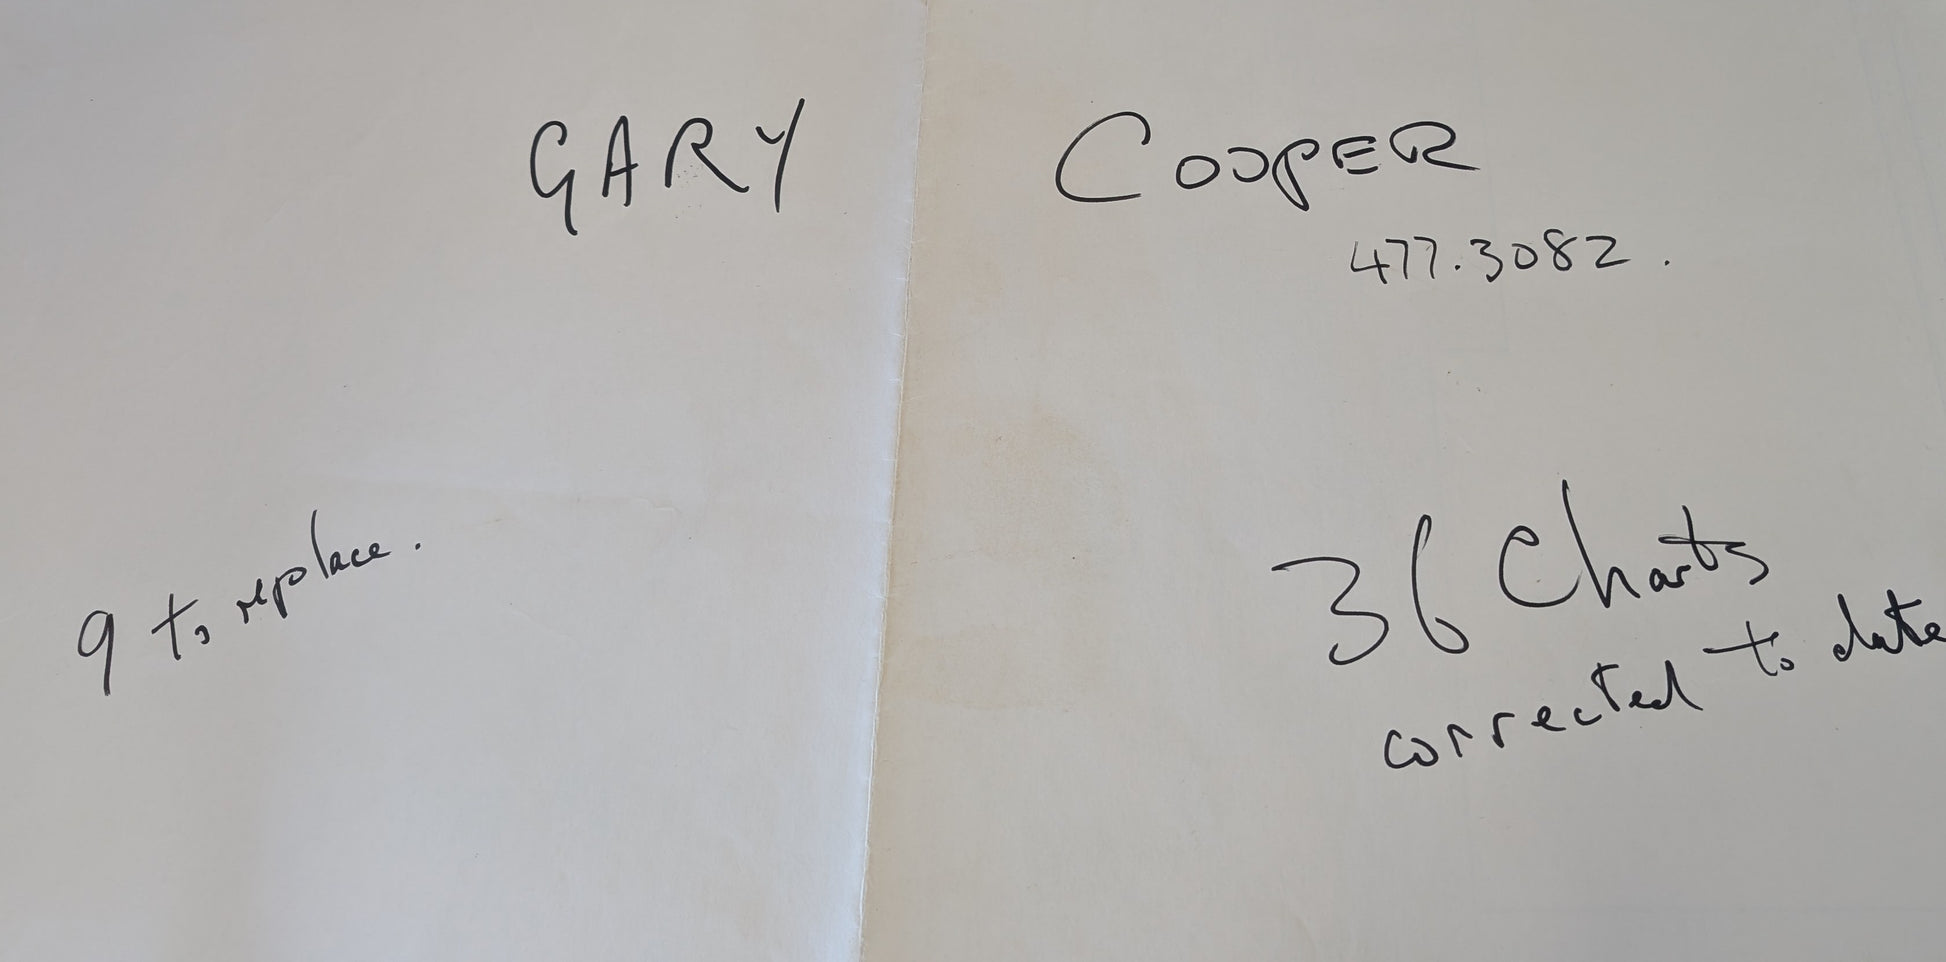 GARY COOPER
477.3082.
9 to replace.
36 Charts
corrected to date